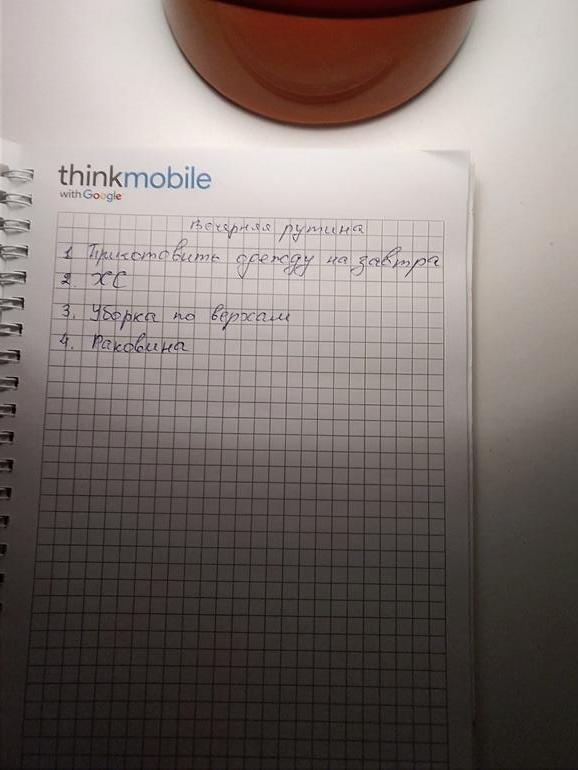 thinkmobile
with Google
Вечерняя рутина
1 Приготовить одежду на завтра
2. ХС
3. Уборка по верхам
4. Раковина